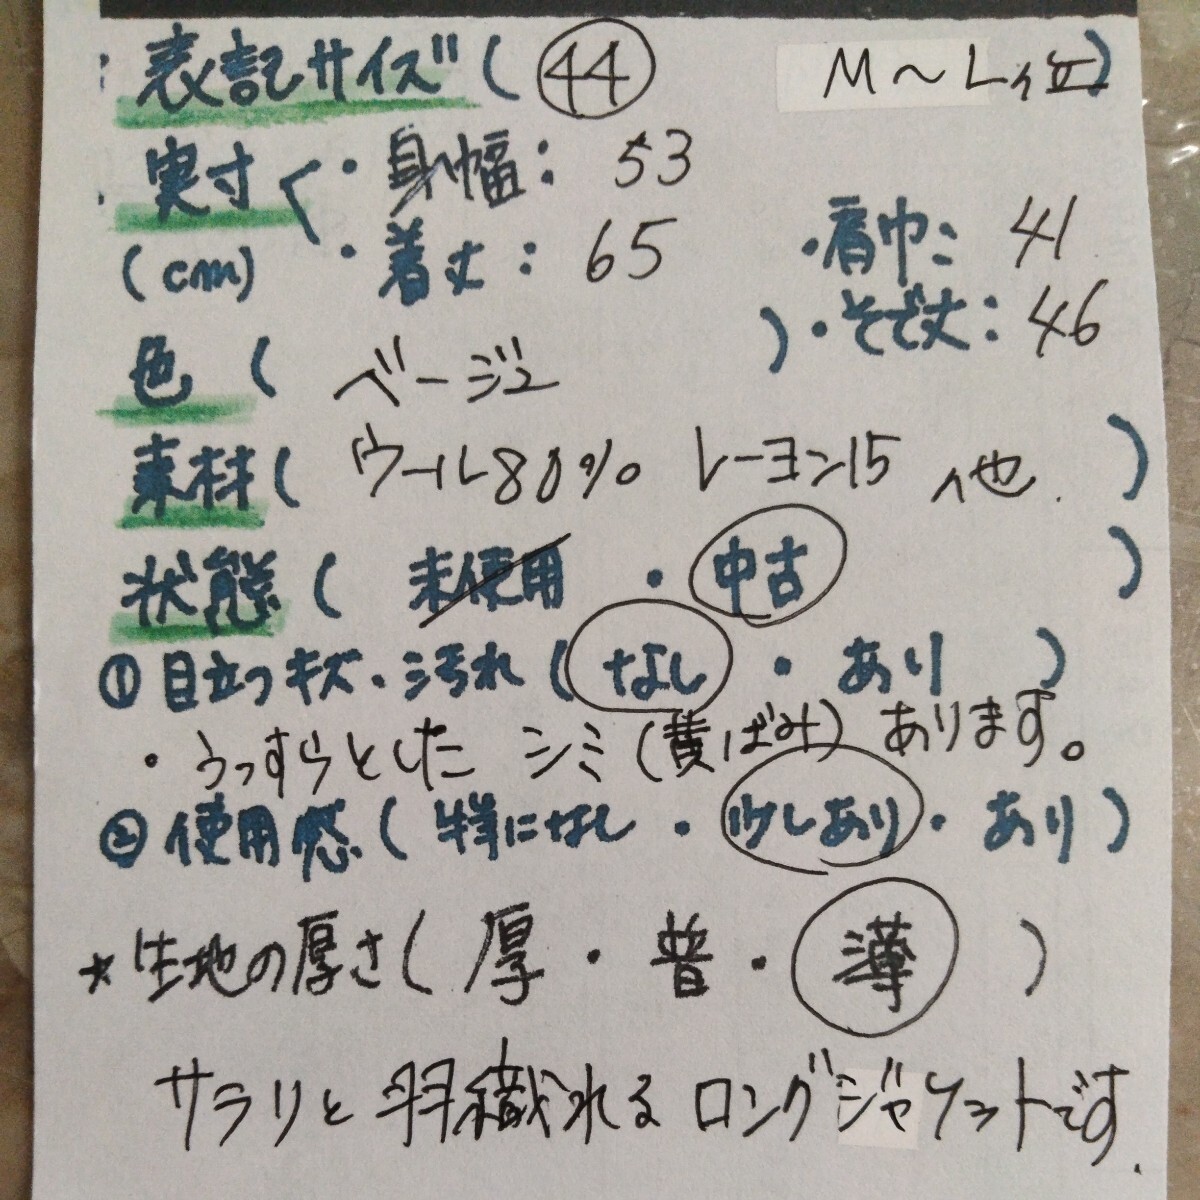 表記サイズ ( 44 M〜L位)
実寸 く ・身幅: 53
(cm) ・着丈: 65 ・肩巾: 41
・そで丈: 46
色 ( ベージュ )
素材 ( ウール80% レーヨン15 、他. )
状態 ( 未使用 ・ 中古 )
① 目立つキズ・汚れ ( なし ・ あり )
・うっすらとした シミ (黄ばみ) あります。
② 使用感 ( 特になし ・ 少しあり ・ あり )
★生地の厚さ ( 厚 ・ 普 ・ 薄 )
サラリと 羽織れる ロングジャケットです.